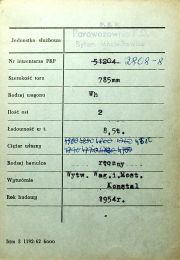 P.K.P.
Parowozownia I D.
Bytom Wąskotorowa
Jednostka służbowa
Nr inwentarza PKP 51204 2808-8
Szerokość toru 785mm
Rodzaj wagonu Wh
Ilość osi 2
Ładowność w t. 8,5t.
Ciężar własny
Rodzaj hamulca ręczny
Wytwórnia Wytw. Wag.i.Most.
Konstal
Rok budowy 1954r.